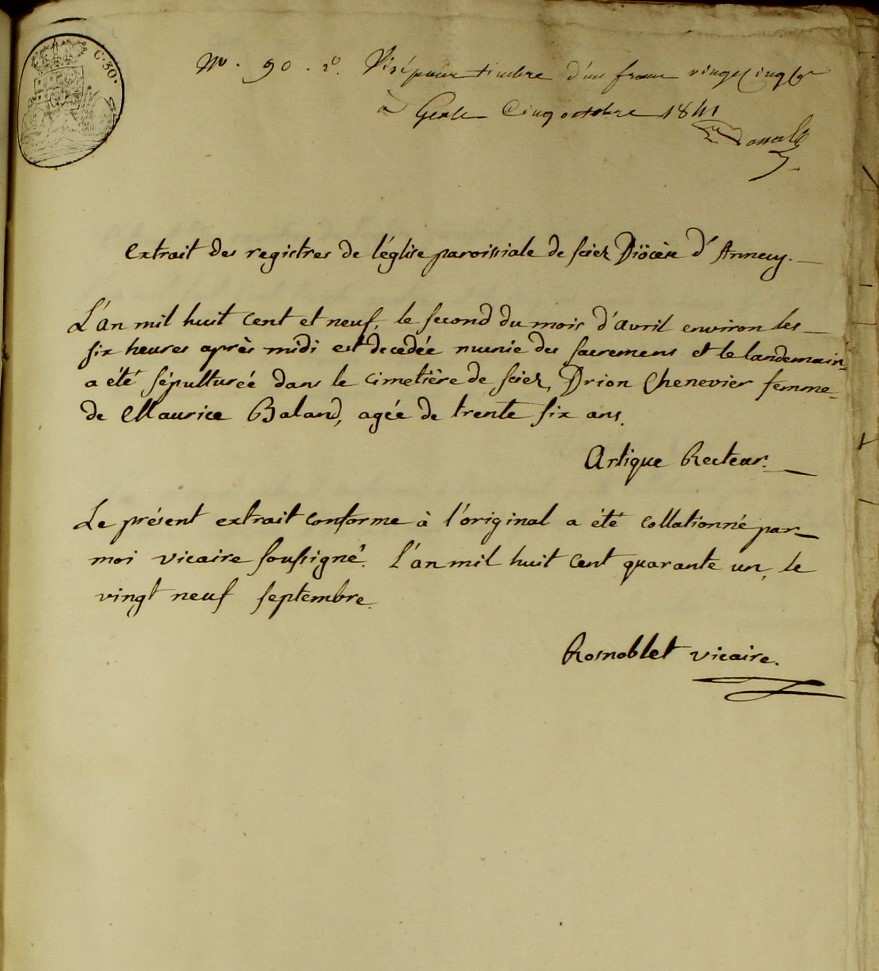 C. 30.
N°. 90. 2°. Visé pour timbre d'un franc vingt cinq
à Genle Cinq octobre 1841
Extrait des registres de l'église paroissiale de sciez Diöcèse d'Annecy.
L'an mil huit cent et neuf, le second du mois d'avril environ les
six heures après midi est decedée munie des sacremens et le landemain
a été sépulturéé dans le cimetière de sciez, Drion Chenevier femme
de Maurice Baland, agée de trente six ans.
Artique Recteur.
Le présent extrait conforme à l'original a été collationné par
moi vicaire soussigné. L'an mil huit cent quarante un, le
vingt neuf septembre.
Rosnoblet vicaire.